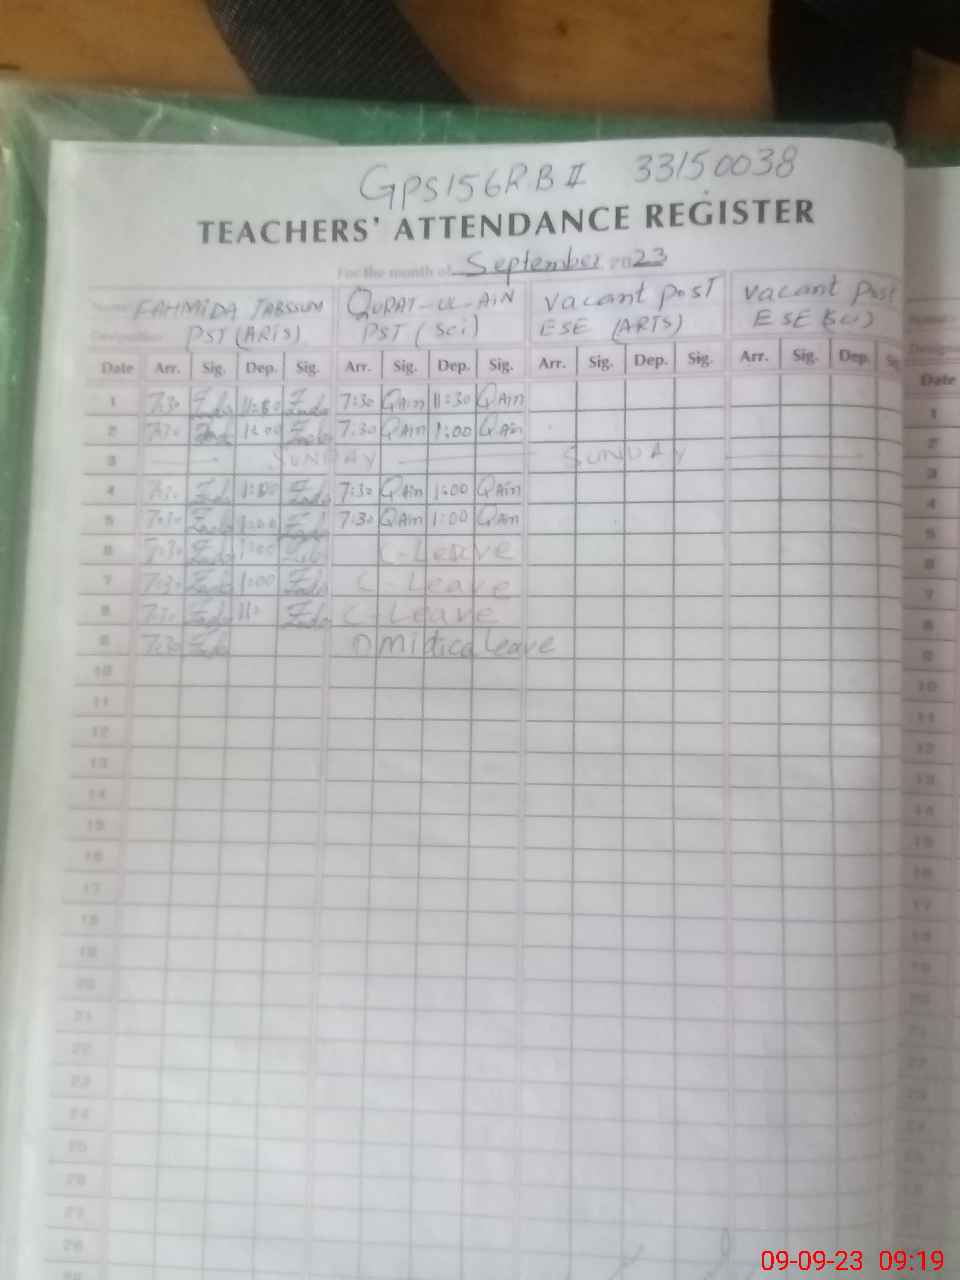 GPS156RB II 33150038
TEACHERS' ATTENDANCE REGISTER
For the month of September 2023
Name FAHMIDA TABSSUM QURAT-UL-AIN Vacant Post Vacant Post
PST (ARTS) PST (Sci) ESE (ARTS) ESE (Sci)
Date Arr. Sig. Dep. Sig. Arr. Sig. Dep. Sig. Arr. Sig. Dep. Sig. Arr. Sig. Dep. Date
1 7:30 11:30 7:30 QAin 11:30 QAin 1
2 7:30 1:00 7:30 QAin 1:00 QAin 2
3 SUNDAY SUNDAY 3
4 7:30 1:00 7:30 QAin 1:00 QAin 4
5 7:30 1:00 7:30 QAin 1:00 QAin 5
6 7:30 1:00 C-Leave 6
7 7:30 1:00 C-Leave 7
8 7:30 C-Leave 8
9 7:30 Leave 9
10 10
11 11
12 12
13 13
14 14
15 15
16 16
17 17
18 18
19 19
20 20
21 21
22 22
23 23
24
25
26
27
28
09-09-23 09:19